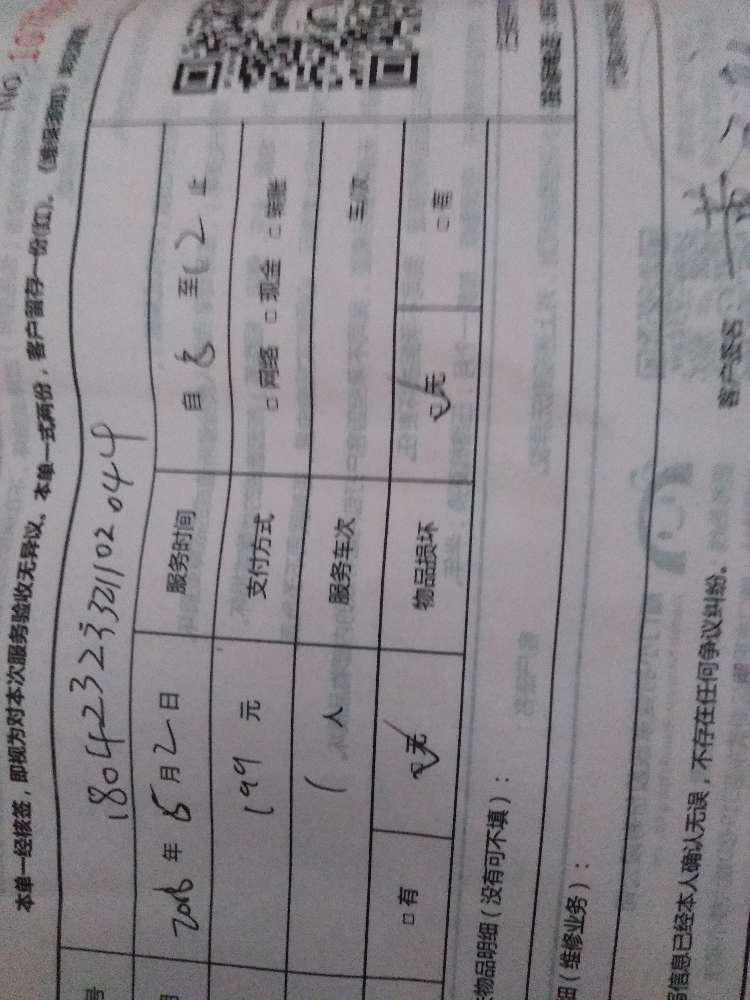 No
本单一经核签，即视为对本次服务验收无异议。本单一式两份，客户留存一份(红)。
号 18042323321102044
2018 年 5 月 2 日 服务时间 自 8 至 12 止
199 元 支付方式 □ 网络 □ 现金 □ 转账
1 人 服务车次 车/次
□ 有 ☑ 无 物品损坏 ☑ 无 □ 有
物品明细（没有可不填）：
细（维修业务）：
信息已经本人确认无误，不存在任何争议纠纷。 客户签名：